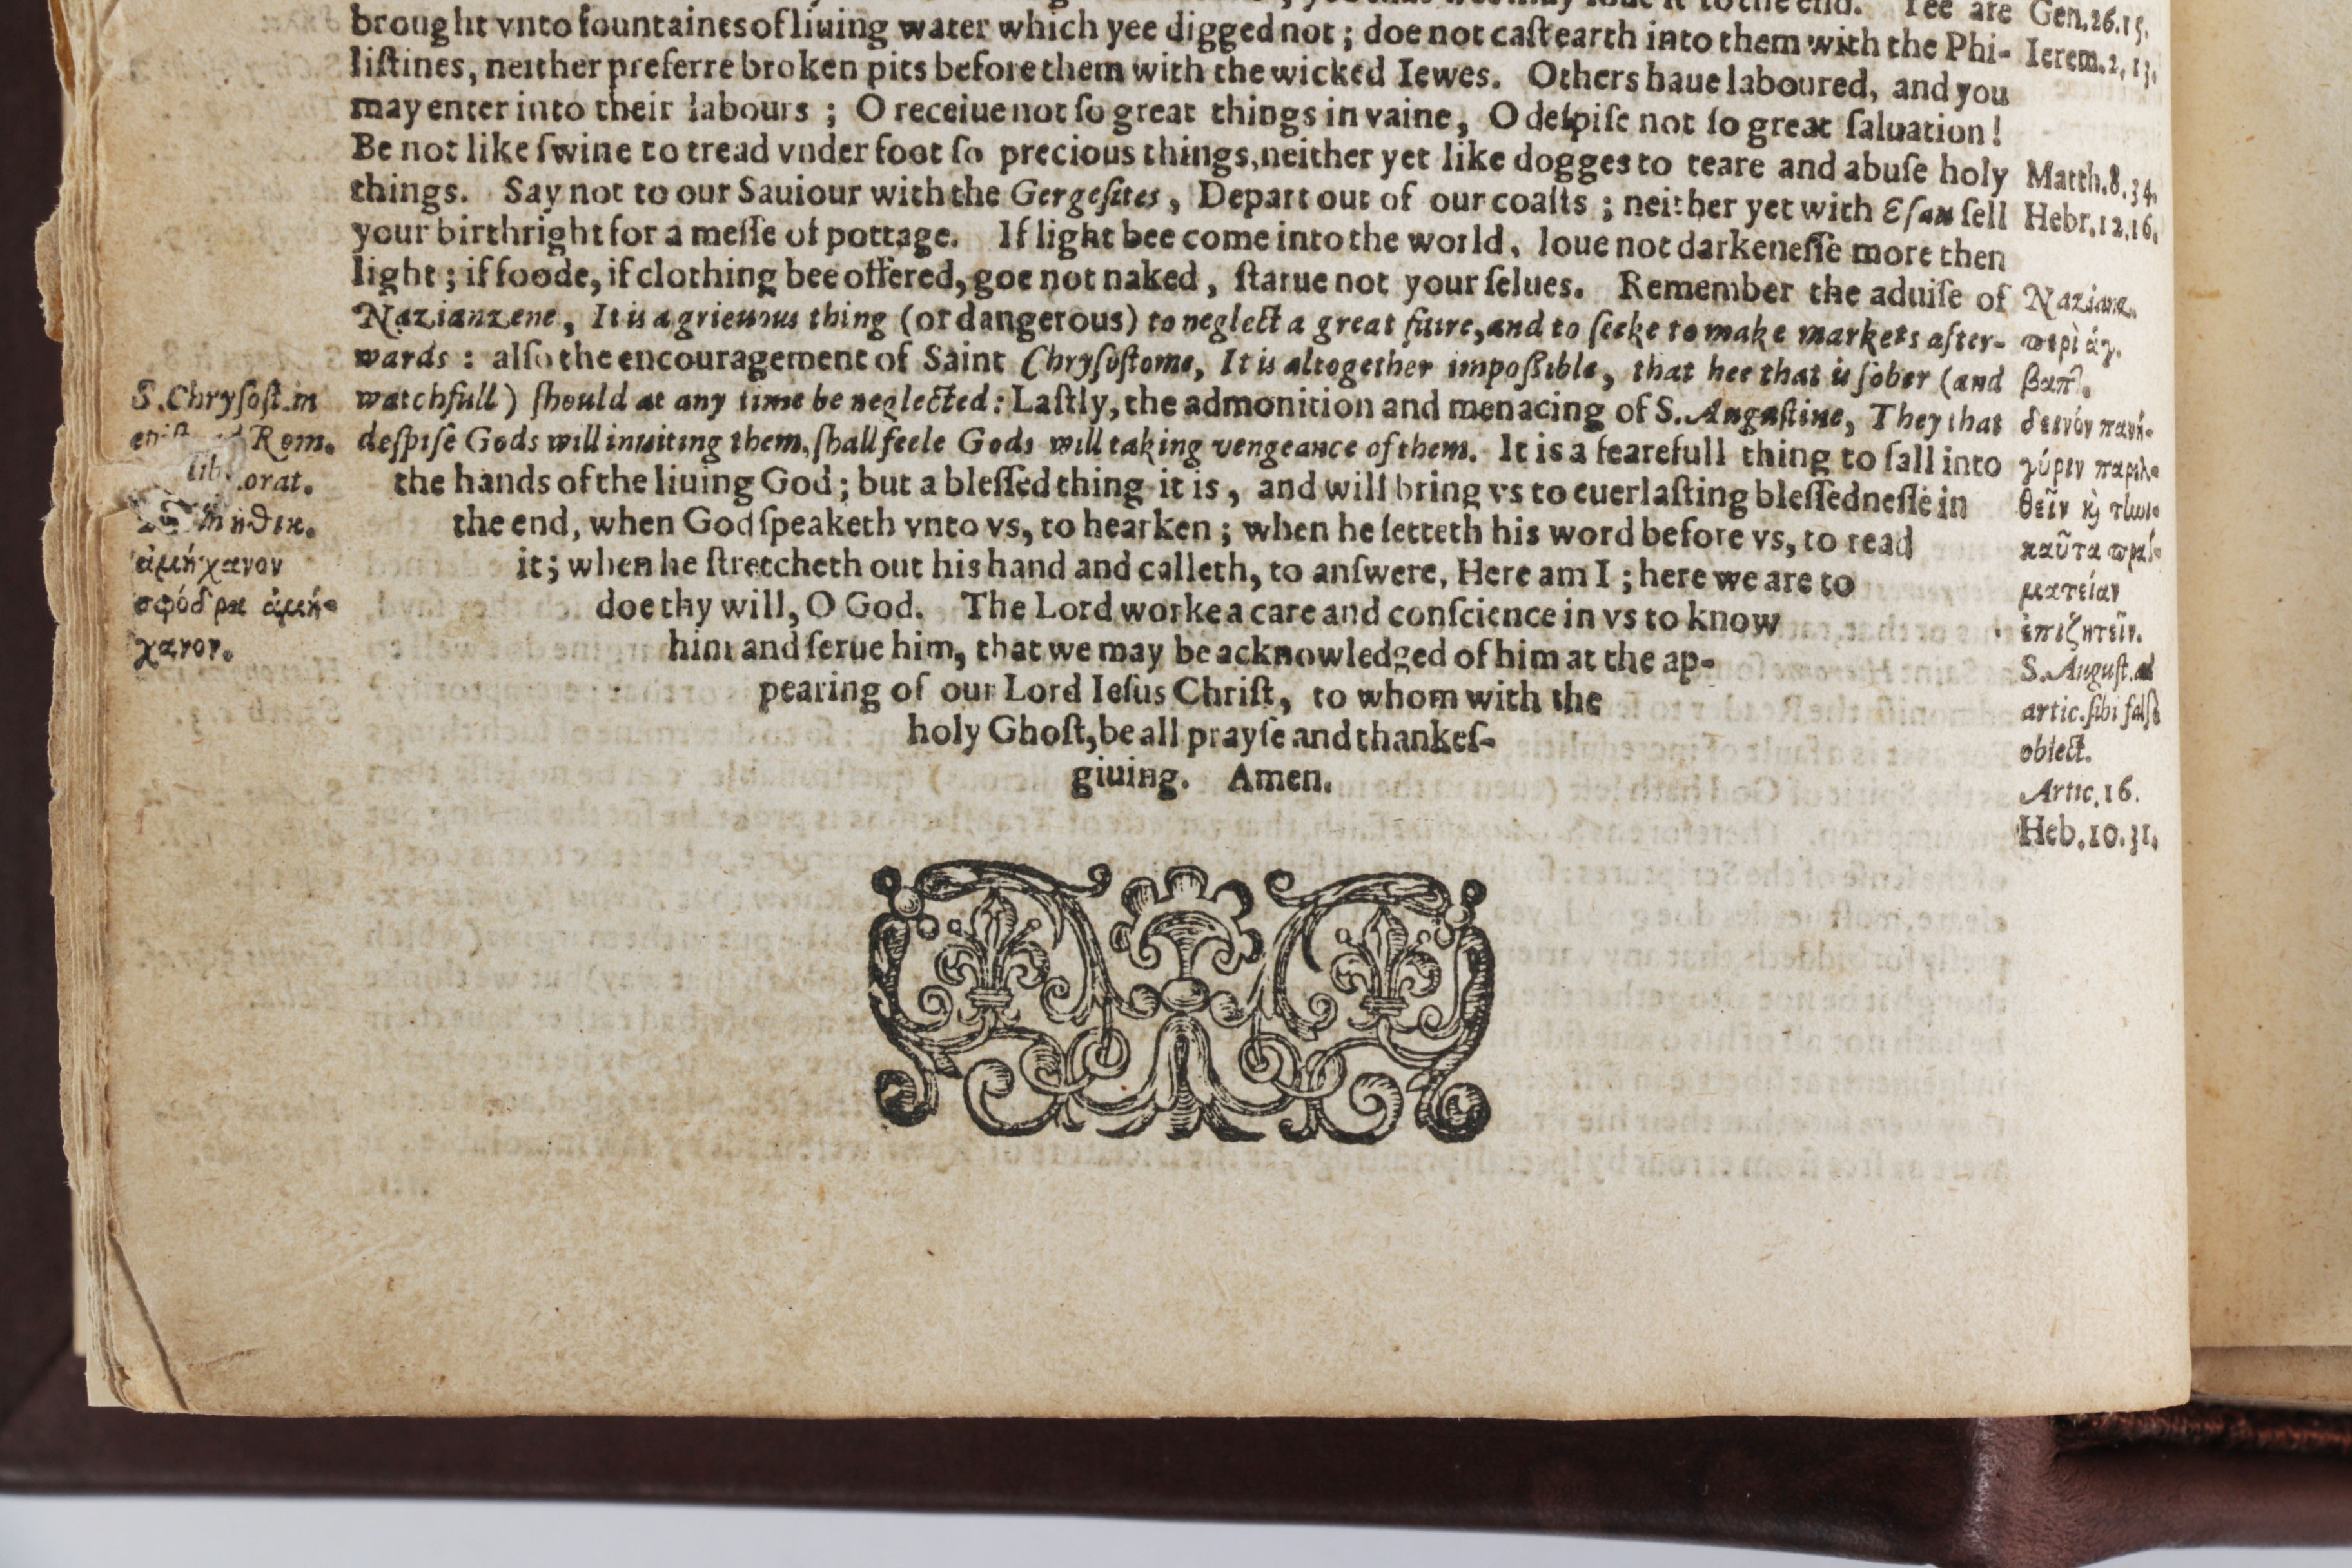 to the end. Yee are
brought vnto fountaines of liuing water which yee digged not; doe not caſt earth into them with the Phi-
liſtines, neither preferre broken pits before them with the wicked Iewes. Others haue laboured, and you
may enter into their labours; O receiue not ſo great things in vaine, O deſpiſe not ſo great ſaluation!
Be not like ſwine to tread vnder foot ſo precious things, neither yet like dogges to teare and abuſe holy
things. Say not to our Sauiour with the Gergeſites, Depart out of our coaſts; neither yet with Eſau ſell
your birthright for a meſſe of pottage. If light bee come into the world, loue not darkeneſſe more then
light; if foode, if clothing bee offered, goe not naked, ſtarue not your ſelues. Remember the aduiſe of
Nazianzene, It is a grieuous thing (or dangerous) to neglect a great faire, and to ſeeke to make markets after-
wards: alſo the encouragement of Saint Chryſoſtome, It is altogether impoſſible, that hee that is ſober (and
watchfull) ſhould at any time be neglected: Laſtly, the admonition and menacing of S. Auguſtine, They that
deſpiſe Gods will inuiting them, ſhall feele Gods will taking vengeance of them. It is a fearefull thing to fall into
the hands of the liuing God; but a bleſſed thing it is, and will bring vs to euerlaſting bleſſedneſſe in
the end, when God ſpeaketh vnto vs, to hearken; when he ſetteth his word before vs, to read
it; when he ſtretcheth out his hand and calleth, to anſwere, Here am I; here we are to
doe thy will, O God. The Lord worke a care and conſcience in vs to know
him and ſerue him, that we may be acknowledged of him at the ap-
pearing of our Lord Ieſus Chriſt, to whom with the
holy Ghoſt, be all prayſe and thankeſ-
giuing. Amen.
S. Chryſoſt. in
Rom.
orat.
ἀμήχανον
σφόδρα ἀμή-
χανον.
Gen. 26. 15.
Ierem. 2, 13.
Matth. 8. 34.
Hebr. 12. 16.
Nazianz.
περὶ ἁγ.
βαπ.
δεινὸν πανή-
γύριν παρελ-
θεῖν κỳ τηνι-
καῦτα πραγ-
ματείαν
ἐπιζητεῖν.
S. Auguſt. ad
artic. ſibi falſò
obiect.
Artic. 16.
Heb. 10. 31.